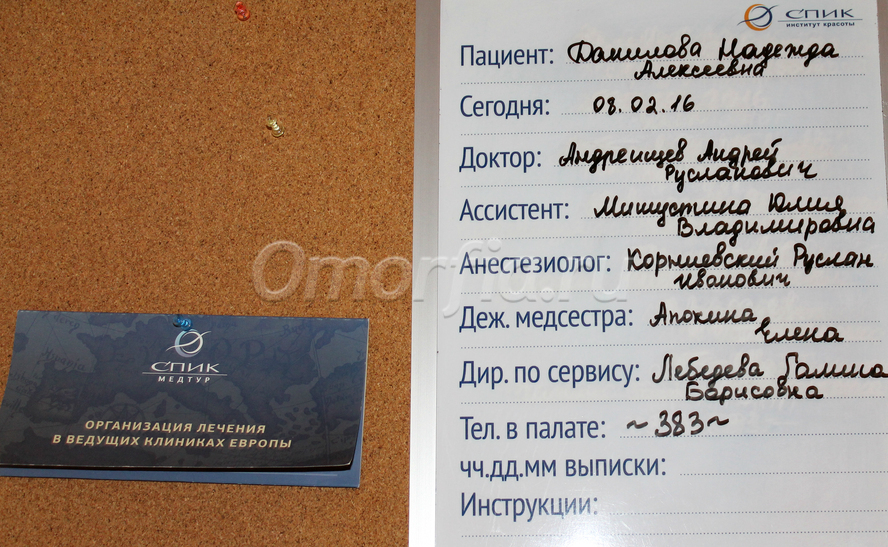 СПИК
институт красоты
Пациент: Данилова Надежда
Алексеевна
Сегодня: 08.02.16
Доктор: Андреищев Андрей
Русланович
Ассистент: Мишустина Юлия
Владимировна
Анестезиолог: Корниевский Руслан
Иванович
Деж. медсестра: Апохина
Елена
Дир. по сервису: Лебедева Галина
Барисовна
Тел. в палате: ~383~
чч.дд.мм выписки:
Инструкции:
СПИК
МЕДТУР
ОРГАНИЗАЦИЯ ЛЕЧЕНИЯ
В ВЕДУЩИХ КЛИНИКАХ ЕВРОПЫ
Omorfia.ru